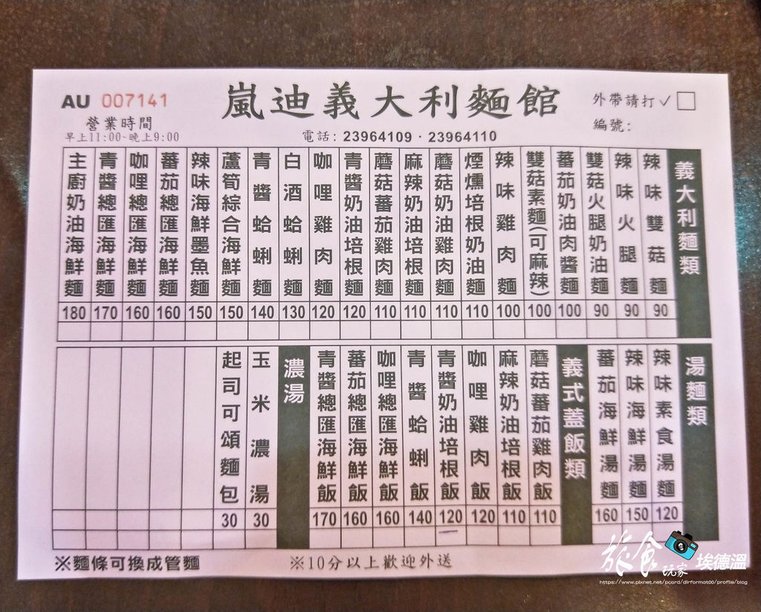 AU 007141
嵐迪義大利麵館
外帶請打✓□
營業時間
早上11:00~晚上9:00
電話: 23964109 · 23964110
編號:
義大利麵類
辣味雙菇麵 90
辣味火腿麵 90
雙菇火腿奶油麵 90
蕃茄奶油肉醬麵 100
雙菇素麵(可麻辣) 100
辣味雞肉麵 100
煙燻培根奶油麵 110
蘑菇奶油雞肉麵 110
麻辣奶油培根麵 110
蘑菇蕃茄雞肉麵 110
青醬奶油培根麵 120
咖哩雞肉麵 120
白酒蛤蜊麵 130
青醬蛤蜊麵 140
蘆筍綜合海鮮麵 150
辣味海鮮墨魚麵 150
蕃茄總匯海鮮麵 160
咖哩總匯海鮮麵 160
青醬總匯海鮮麵 170
主廚奶油海鮮麵 180
湯麵類
辣味素食湯麵 120
辣味海鮮湯麵 150
蕃茄海鮮湯麵 160
義式蓋飯類
蘑菇蕃茄雞肉飯 110
麻辣奶油培根飯 110
咖哩雞肉飯 120
青醬奶油培根飯 120
青醬蛤蜊飯 140
咖哩總匯海鮮飯 160
蕃茄總匯海鮮飯 160
青醬總匯海鮮飯 170
濃湯
玉米濃湯 30
起司可頌麵包 30
※麵條可換成管麵
※10分以上歡迎外送
旅食玩家 埃德溫